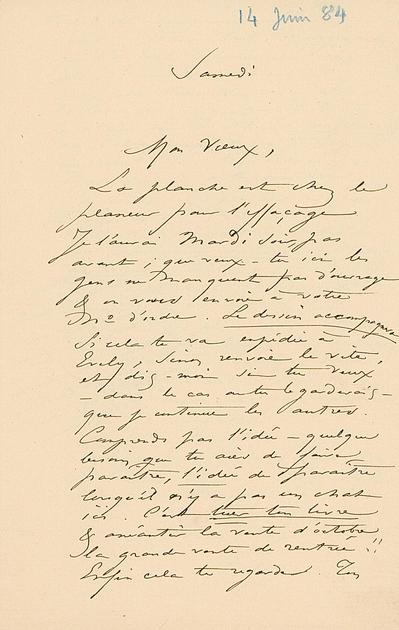 14 Juin 84
Samedi
Mon Vieux,
La planche est chez le
planeur pour l'effaçage
Je l'aurai Mardi soir, pas
avant ; que veux-tu ici les
gens ne manquent pas d'ouvrage
& on vous envoie à votre
No d'ordre. Le dessin accompagnera
Si cela te va expédie à
Evely, Sinon renvoie le vite,
et dis-moi si tu veux
- dans le cas où tu le garderais -
que je continue les autres.
Comprends pas l'idée - quelque
besoin que tu aies de faire
paraître, l'idée de paraître
lorsqu'il n'y a pas un chat
ici. C'est tuer ton livre
& anéantir la vente d'octobre
la grande vente de rentrée !!
Enfin cela te regarde. Tu